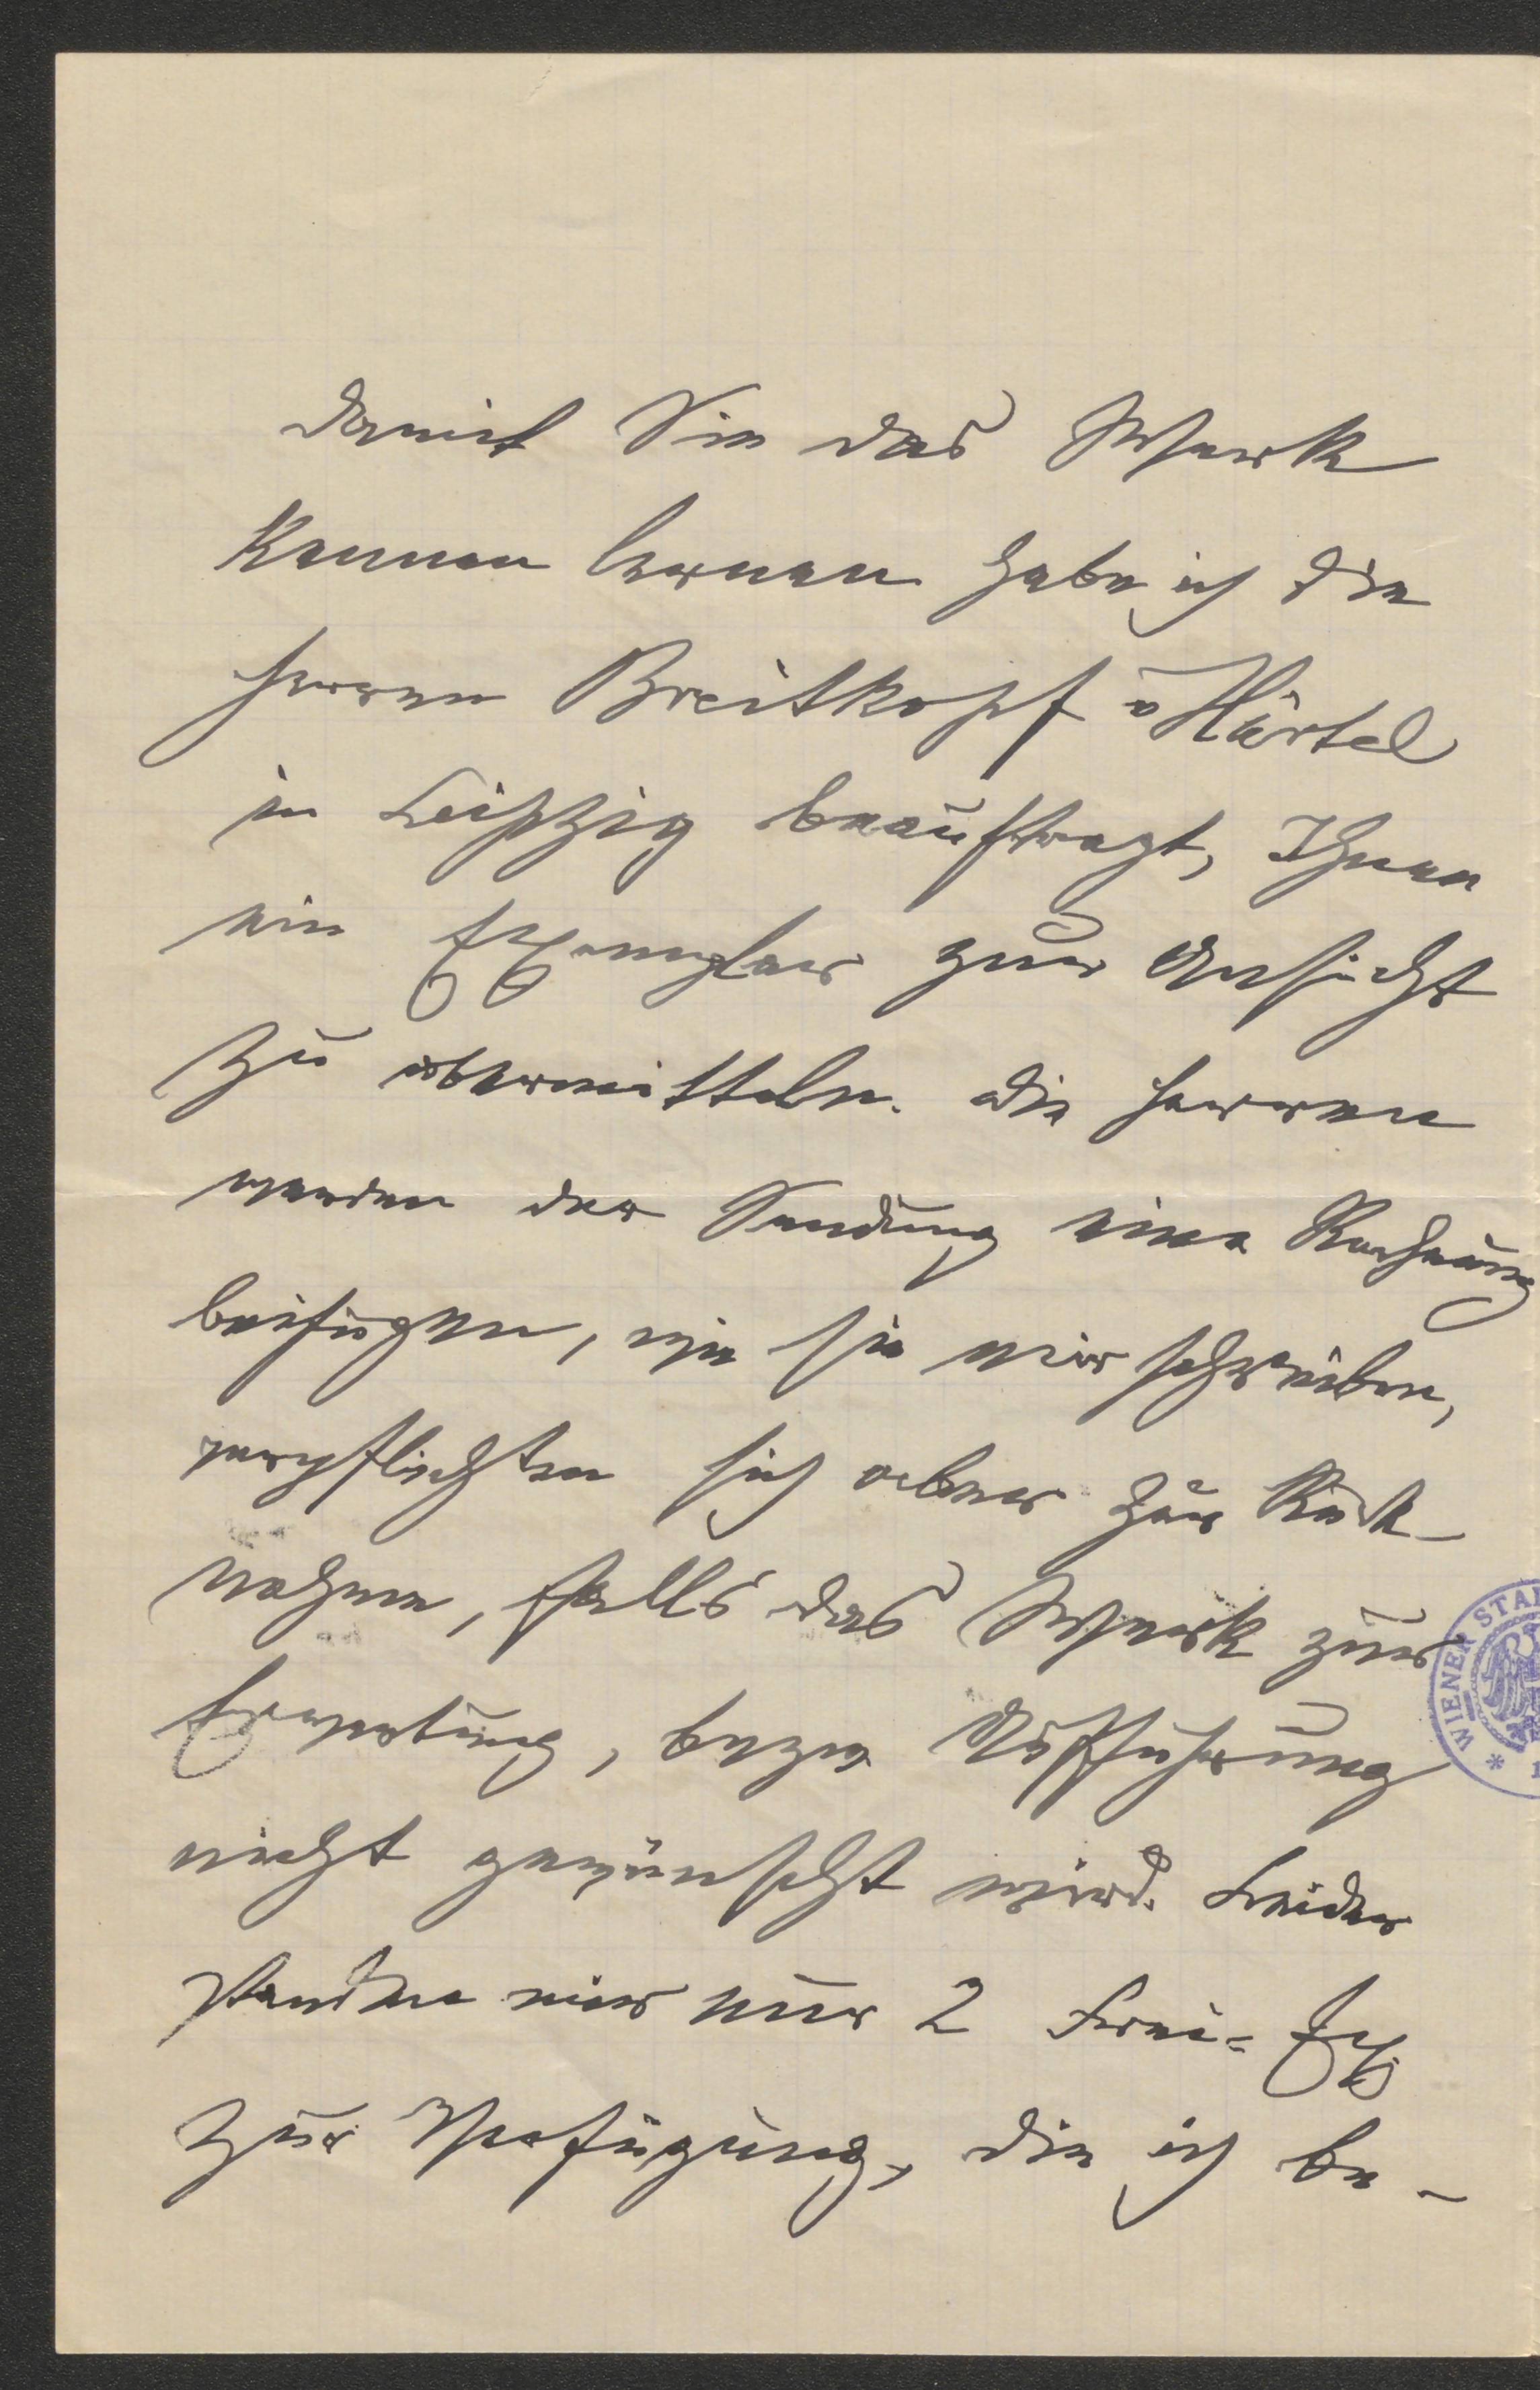 damit Sie das Werk
kennen lernen habe ich die
Herren Breitkopf u Härtel
in Leipzig beauftragt, Ihnen
ein Exemplar zur Ansicht
zu übermitteln. Die Herren
werden der Sendung eine Rechnung
beifügen, wie sie mir schreiben,
verpflichten sich aber zur Rück-
nahme, falls das Werk zur
bezw Aufführung
nicht gewünscht wird. Leider
standen mir nur 2 Frei=Ex
zur Verfügung, die ich be-
WIENER STA